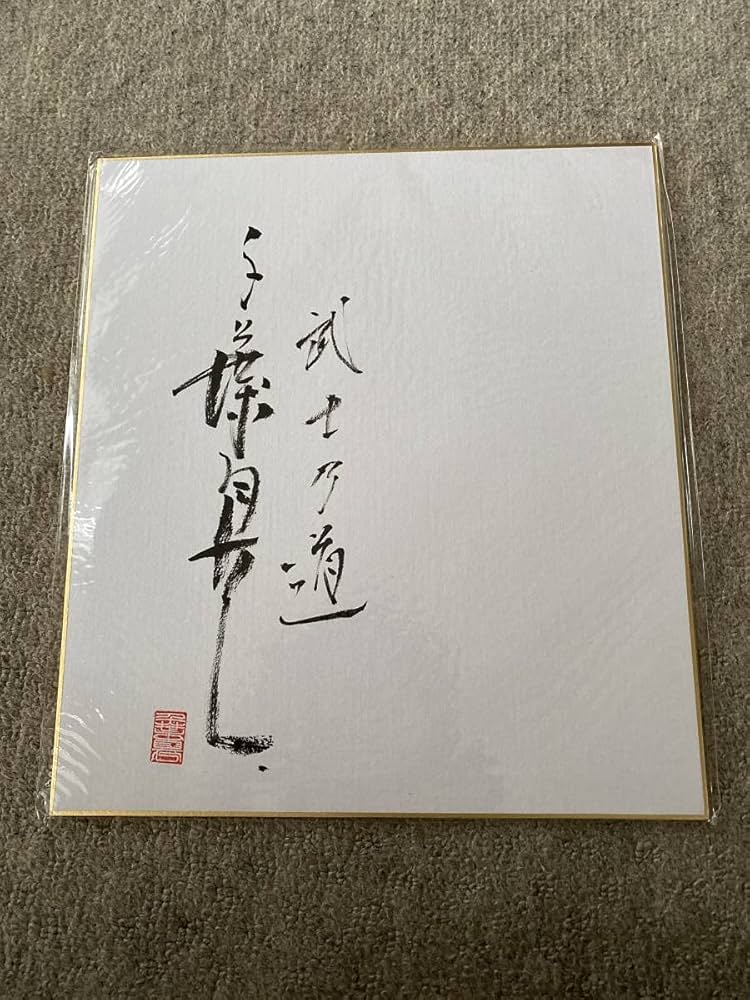 武士乃道
千葉真一